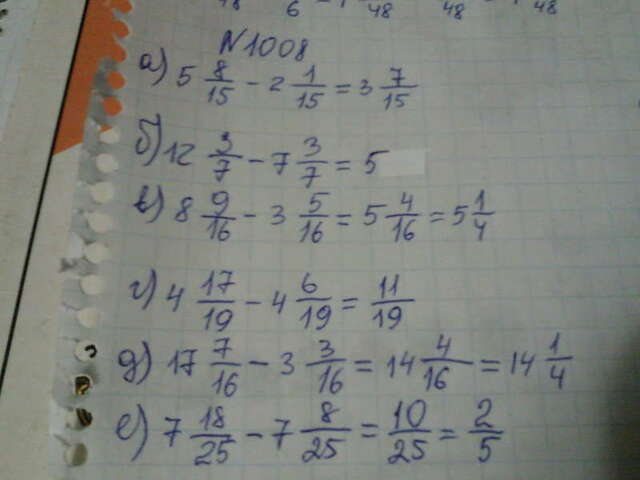 48 6 48 48 48
N1008
а) 5 8/15 - 2 1/15 = 3 7/15
б) 12 3/7 - 7 3/7 = 5
в) 8 9/16 - 3 5/16 = 5 4/16 = 5 1/4
г) 4 17/19 - 4 6/19 = 11/19
д) 17 7/16 - 3 3/16 = 14 4/16 = 14 1/4
е) 7 18/25 - 7 8/25 = 10/25 = 2/5